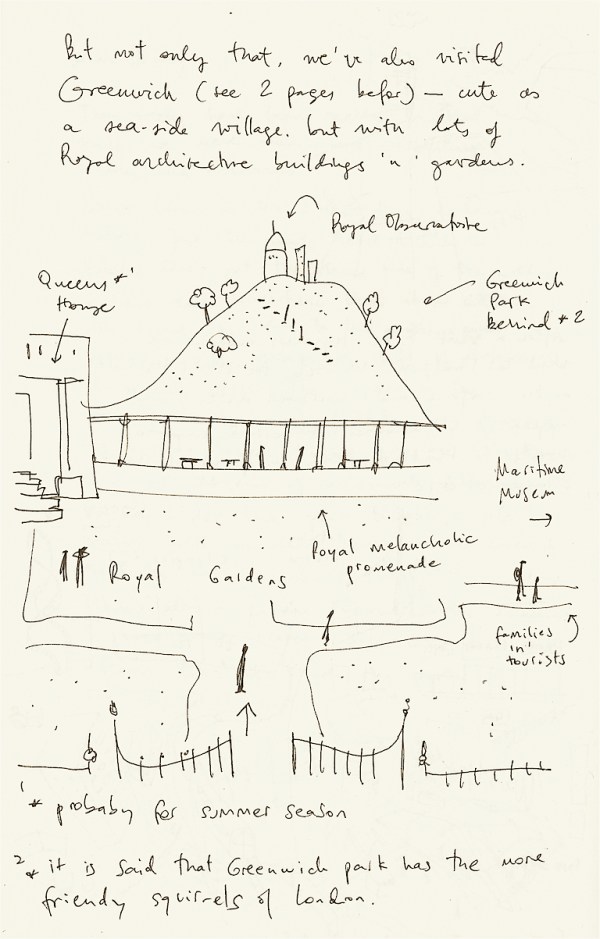 But not only that, we've also visited
Greenwich (see 2 pages befor) — cute as
a sea-side village. but with lots of
Royal architectre buildings 'n' gardens.
Royal Observatoire
Queens *1
House
Greenwich
Park
behind *2
Maritime
Museum
Royal melancholic
promenade
Royal Gardens
families
'n'
tourists
1* probaby for summer season
2* it is said that Greenwich park has the more
friendly squirrels of London.